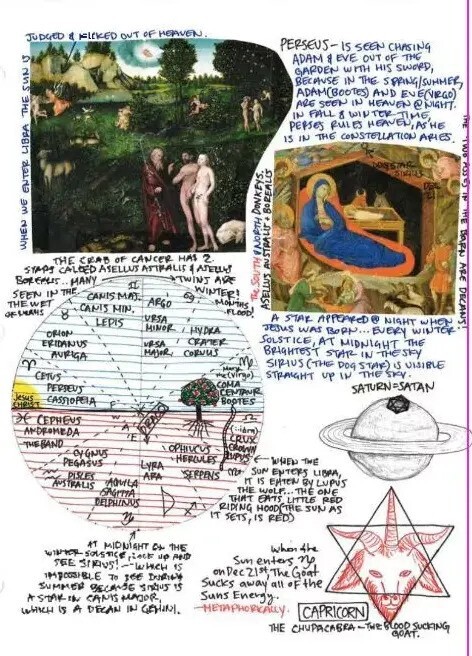 JUDGED & KICKED OUT OF HEAVEN.
WHEN WE ENTER LIBRA THE SUN IS
PERSEUS - IS SEEN CHASING
ADAM & EVE OUT OF THE
GARDEN WITH HIS SWORD,
BECAUSE IN THE SPRING/SUMMER,
ADAM (BOOTES) AND EVE (VIRGO)
ARE SEEN IN HEAVEN @ NIGHT.
IN FALL & WINTER TIME,
PERSES RULES HEAVEN, AS HE
IS IN THE CONSTELLATION ARIES.
DOGSTAR
SIRIUS
DEC
21
The South & NORTH DONKEYS.
ASELLUS AUSTRALIS + BOREALIS
THE CRAB OF CANCER HAS 2
STARS CALLED ASELLUS ASTRALIS & ASELLUS
BOREALIS... MANY TWINS ARE
SEEN IN THE WINTER!
MONTHS
FLOOD!
CANIS MAJ.
CANIS MIN.
LEPIS
ARGO
URSA
MINOR
URSA
MAJOR
HYDRA
CRATER
CORVUS
ORION
ERIDANUS
AURIGA
CETUS
PERSEUS
CASSIOPEIA
JESUS
CHRIST
(Virgo)
COMA
CENTAUR
BOOTES
DRACO
CEPHEUS
ANDROMEDA
THE BAND
CYGNUS
PEGASUS
PISCES
AUSTRALIS
AQUILA
SAGITTA
DELPHINUS
LYRA
ARA
OPHIUCUS
HERCULES
SERPENS
CRUX
CROWN
LUPUS
A STAR APPEARED @ NIGHT WHEN
JESUS WAS BORN... EVERY WINTER
SOLSTICE, AT MIDNIGHT THE
BRIGHTEST STAR IN THE SKY
SIRIUS (THE DOG STAR) IS VISIBLE
STRAIGHT UP IN THE SKY.
SATURN=SATAN
WHEN THE
SUN ENTERS LIBRA,
IT IS EATEN BY LUPUS
THE WOLF... THE ONE
THAT EATS LITTLE RED
RIDING HOOD (THE SUN AS
IT SETS, IS RED)
AT MIDNIGHT ON THE
WINTER SOLSTICE, LOOK UP AND
SEE SIRIUS! - WHICH IS
IMPOSSIBLE TO SEE DURING
SUMMER BECAUSE SIRIUS IS
A STAR IN CANIS MAJOR,
WHICH IS A DECAN IN GEMINI.
When the
Sun enters ♑
on Dec 21st, The Goat
Sucks away all of the
Suns Energy.
-METAPHORICALLY.
CAPRICORN
THE CHUPACABRA - THE BLOOD SUCKING
GOAT.